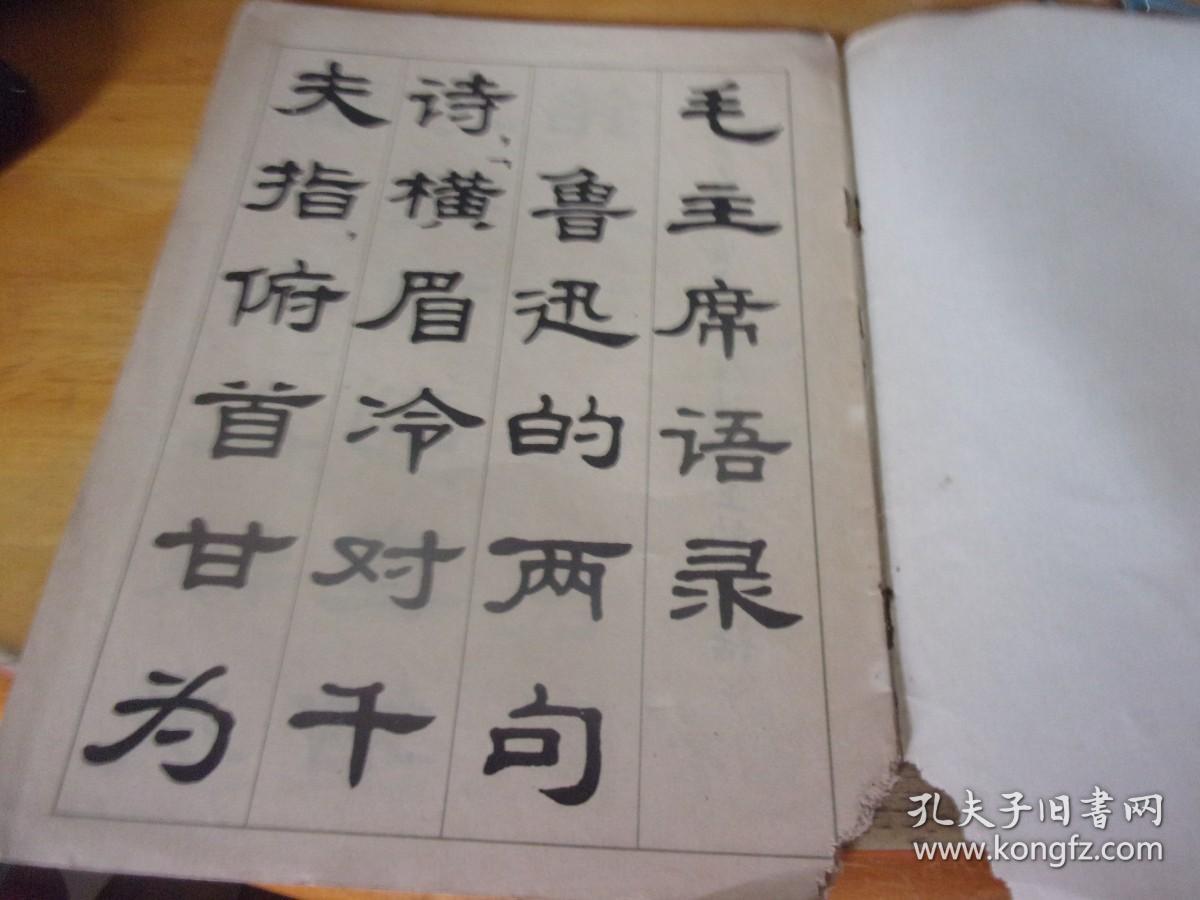 毛主席语录
鲁迅的两句
诗，“横眉冷对千
夫指，俯首甘为
孔夫子旧书网
www.kongfz.com